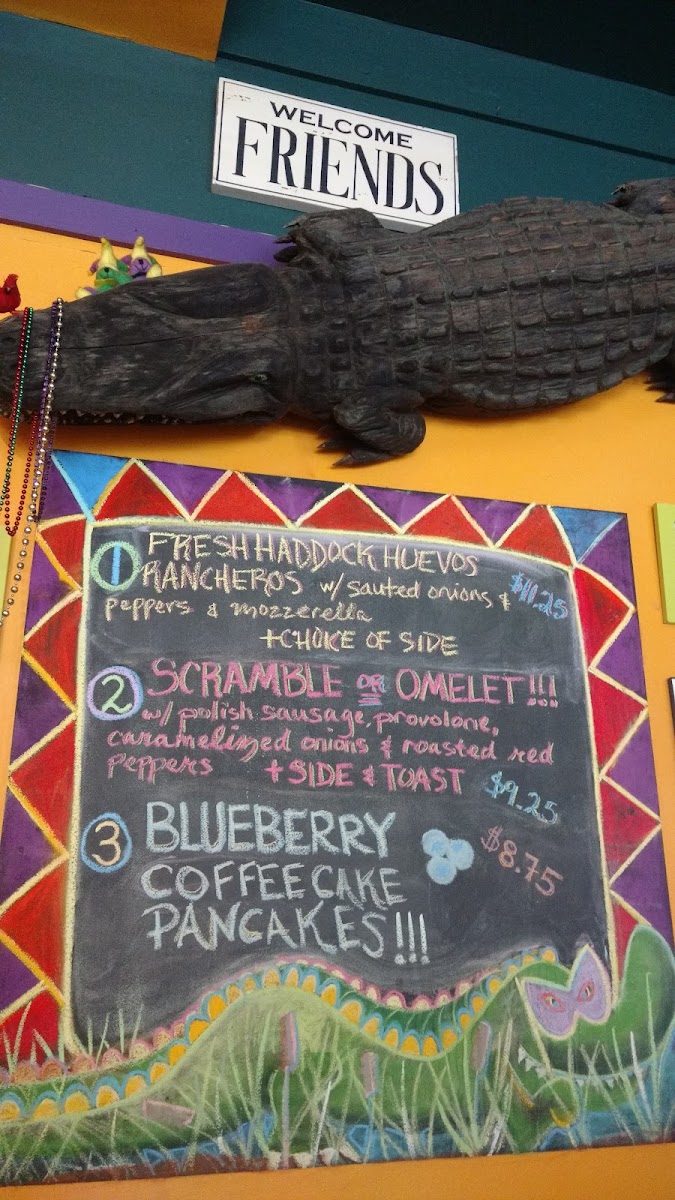 WELCOME
FRIENDS
1 FRESH HADDOCK HUEVOS
RANCHEROS w/ sauted onions & $11.25
peppers & mozzerella
+CHOICE OF SIDE
2 SCRAMBLE OR OMELET!!!
w/ polish sausage, provolone,
caramelized onions & roasted red
peppers +SIDE & TOAST $9.25
3 BLUEBERRY $8.75
COFFEE CAKE
PANCAKES!!!